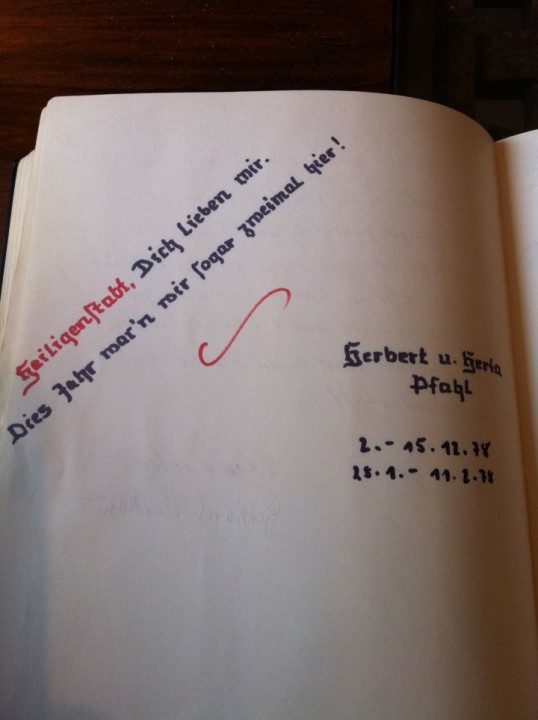 Heiligenstadt, Dich lieben wir.
Dies Jahr war'n wir sogar zweimal hier!
Herbert u. Herta
Pfahl
2.- 15.12.78
28.1.- 11.2.78